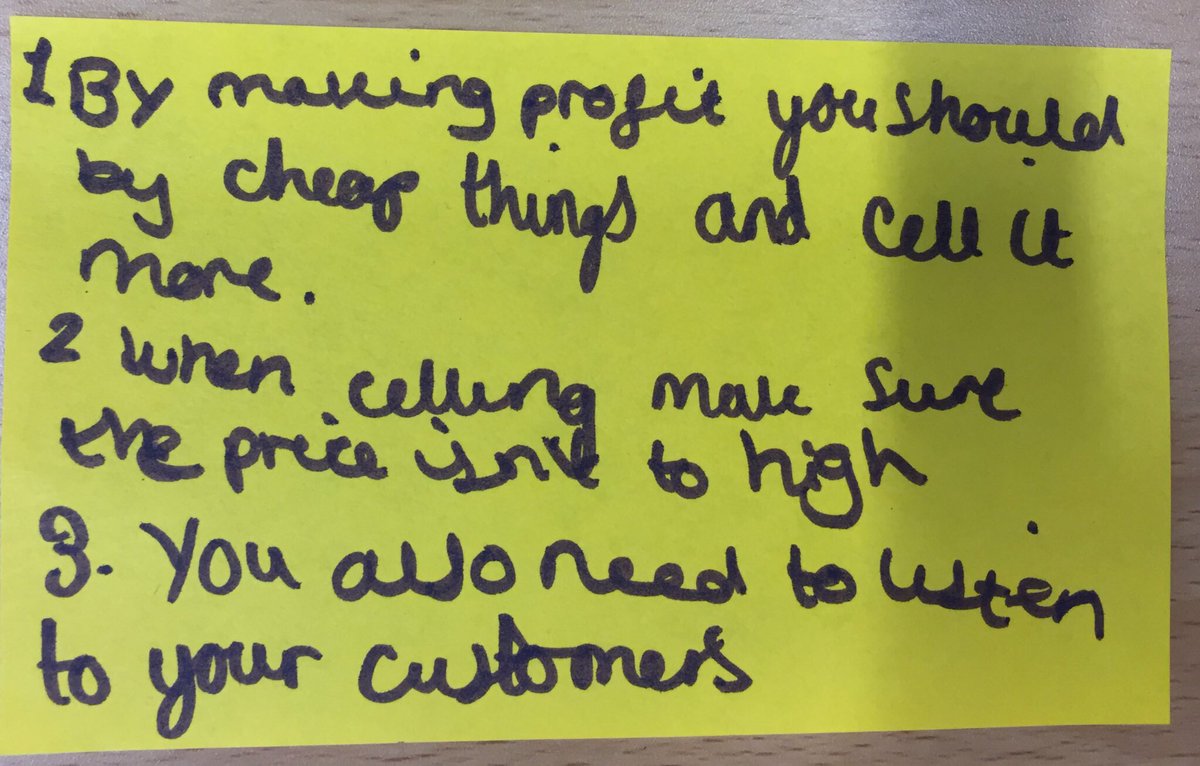 1 By making profit you should
by cheap things and cell it
more.
2 when celling make sure
the price isn't to high
3. You also need to listen
to your customers